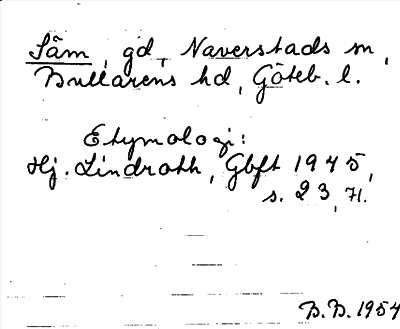 Säm, gd, Naverstads sn,
Bullarens hd, Göteb. l.
Etymologi:
Hj. Lindroth, Gbft 1945,
s. 23, 71.
B.B. 1954